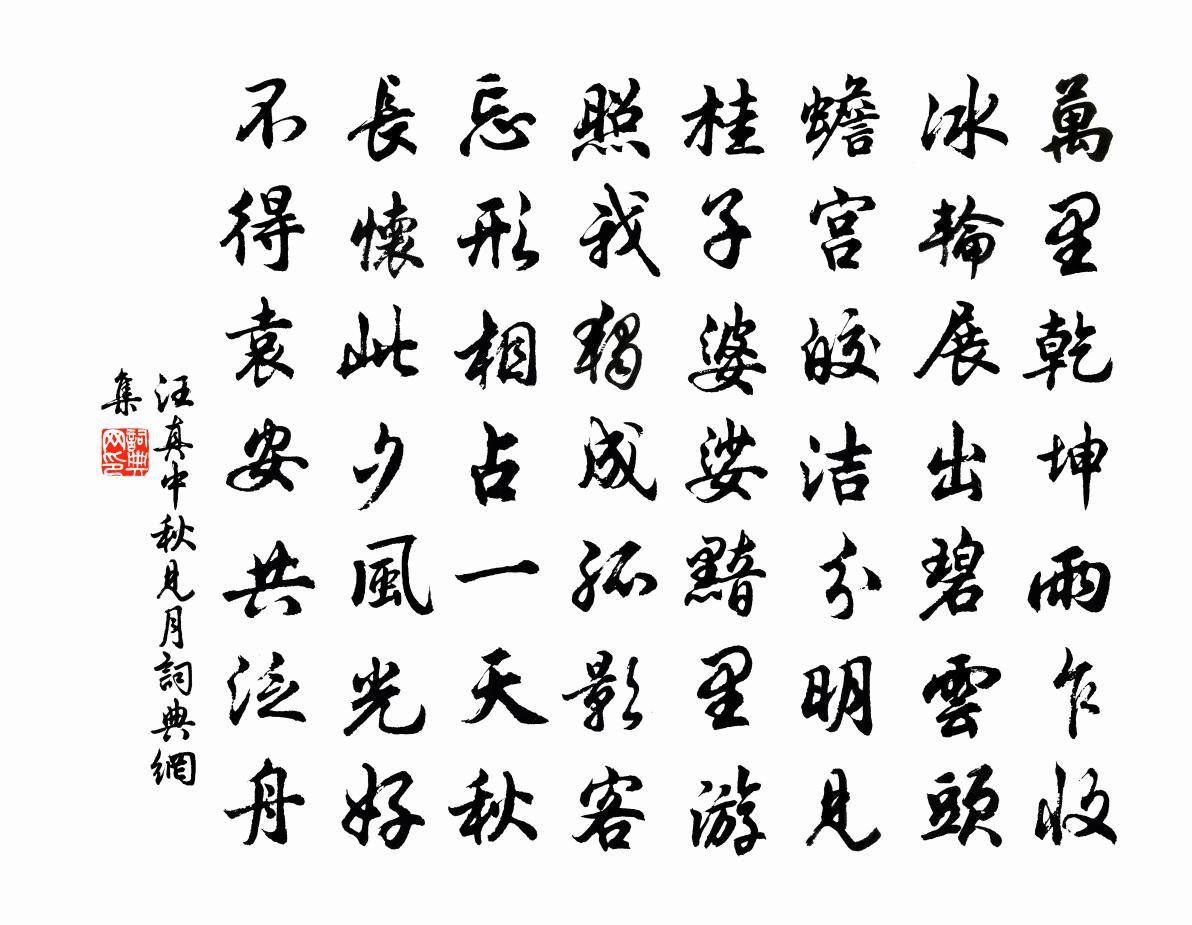 萬里乾坤雨乍收
冰輪展出碧雲頭
蟾宮皎洁分明見
桂子婆娑黯里游
照我獨成孤影客
忘形相占一天秋
長懷此夕風光好
不得袁安共泛舟
汪真中秋見月詞典網
集
詞典
网印